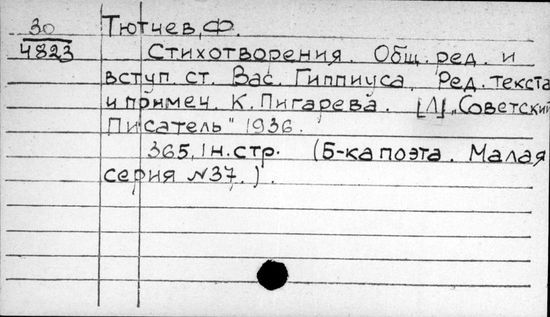 30
4823
Тютчев, Ф.
Стихотворения. Общ. ред. и
вступ. ст. Вас. Гиппиуса. Ред. текста
и примеч. К. Пигарева. [Л] „Советский
Писатель" 1936.
365, 1 н. стр. (Б-ка поэта. Малая
серия № 37.).